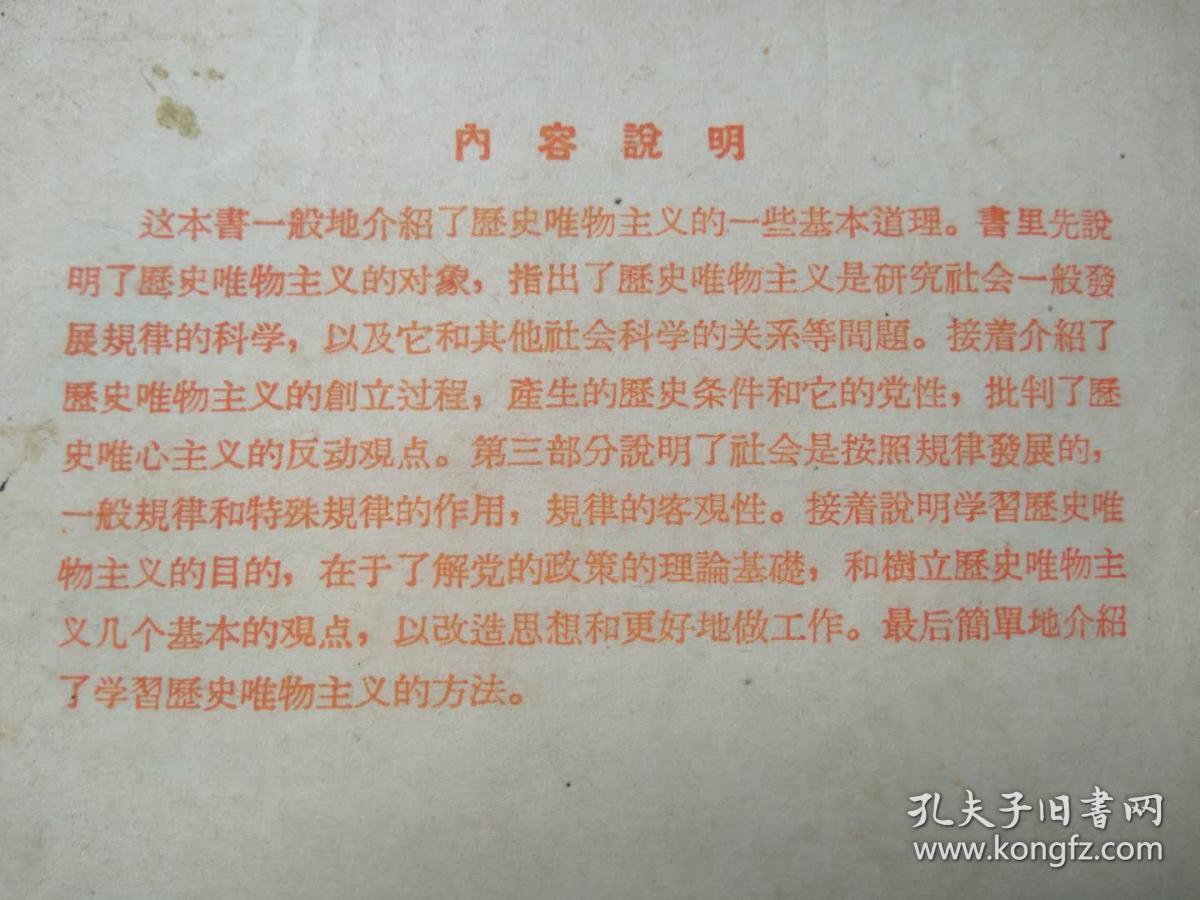 內容說明
这本書一般地介紹了歷史唯物主义的一些基本道理。書里先說
明了歷史唯物主义的对象，指出了歷史唯物主义是研究社会一般發
展規律的科学，以及它和其他社会科学的关系等問題。接着介紹了
歷史唯物主义的創立过程，產生的歷史条件和它的党性，批判了歷
史唯心主义的反动观点。第三部分說明了社会是按照規律發展的，
一般規律和特殊規律的作用，規律的客观性。接着說明学習歷史唯
物主义的目的，在于了解党的政策的理論基礎，和樹立歷史唯物主
义几个基本的观点，以改造思想和更好地做工作。最后簡單地介紹
了学習歷史唯物主义的方法。
孔夫子旧书网
www.kongfz.com